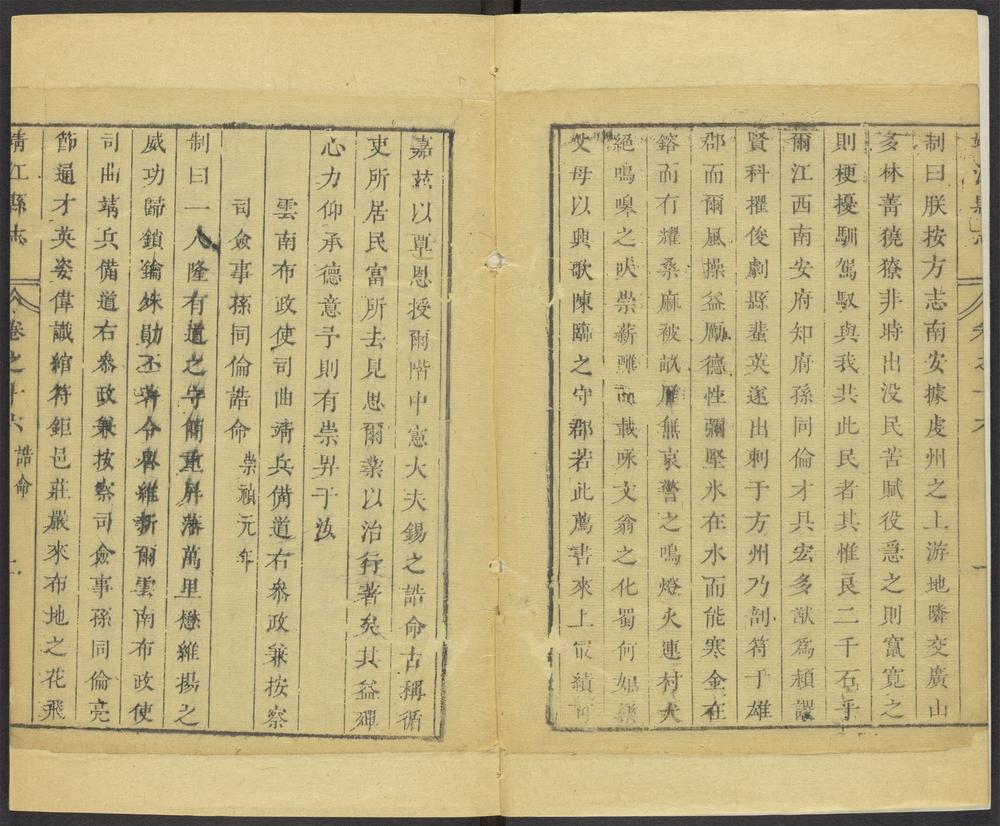 靖江縣志 卷之十六
制曰朕按方志南安據虔州之上游地隣交廣山
多林菁獞獠非時出没民苦賦役急之則竄寬之
則梗擾馴駕馭與我共此民者其惟良二千石乎
爾江西南安府知府孫同倫才具宏多猷爲穎謐
賢科擢俊劇縣蜚英遂出刺于方州乃剖符于雄
郡而爾風操益勵德性彌堅氷在水而能寒金在
鎔而有耀桑麻被畝鴈無哀警之鳴燈火連村犬
絕鳴嘷之吠崇薪雕 載咏文翁之化蜀何如
父母以興歌陳臨之守郡若此薦書來上最績可
嘉玆以覃恩授爾階中憲大夫錫之誥命古稱循
吏所居民富所去見思爾業以治行著矣其益殫
心力仰承德意予則有崇昇于汝
雲南布政使司曲靖兵備道右叅政兼按察
司僉事孫同倫誥命 崇禎元年
制曰一人隆有道之守 重屏藩萬里懋維揚之
威功歸鎖鑰 勛丕著令 維新爾雲南布政使
司曲靖兵備道右叅政兼按察司僉事孫同倫亮
節通才英姿偉識綰符鉅邑莊嚴來布地之花飛
靖江縣志 卷之十六 誥命 二